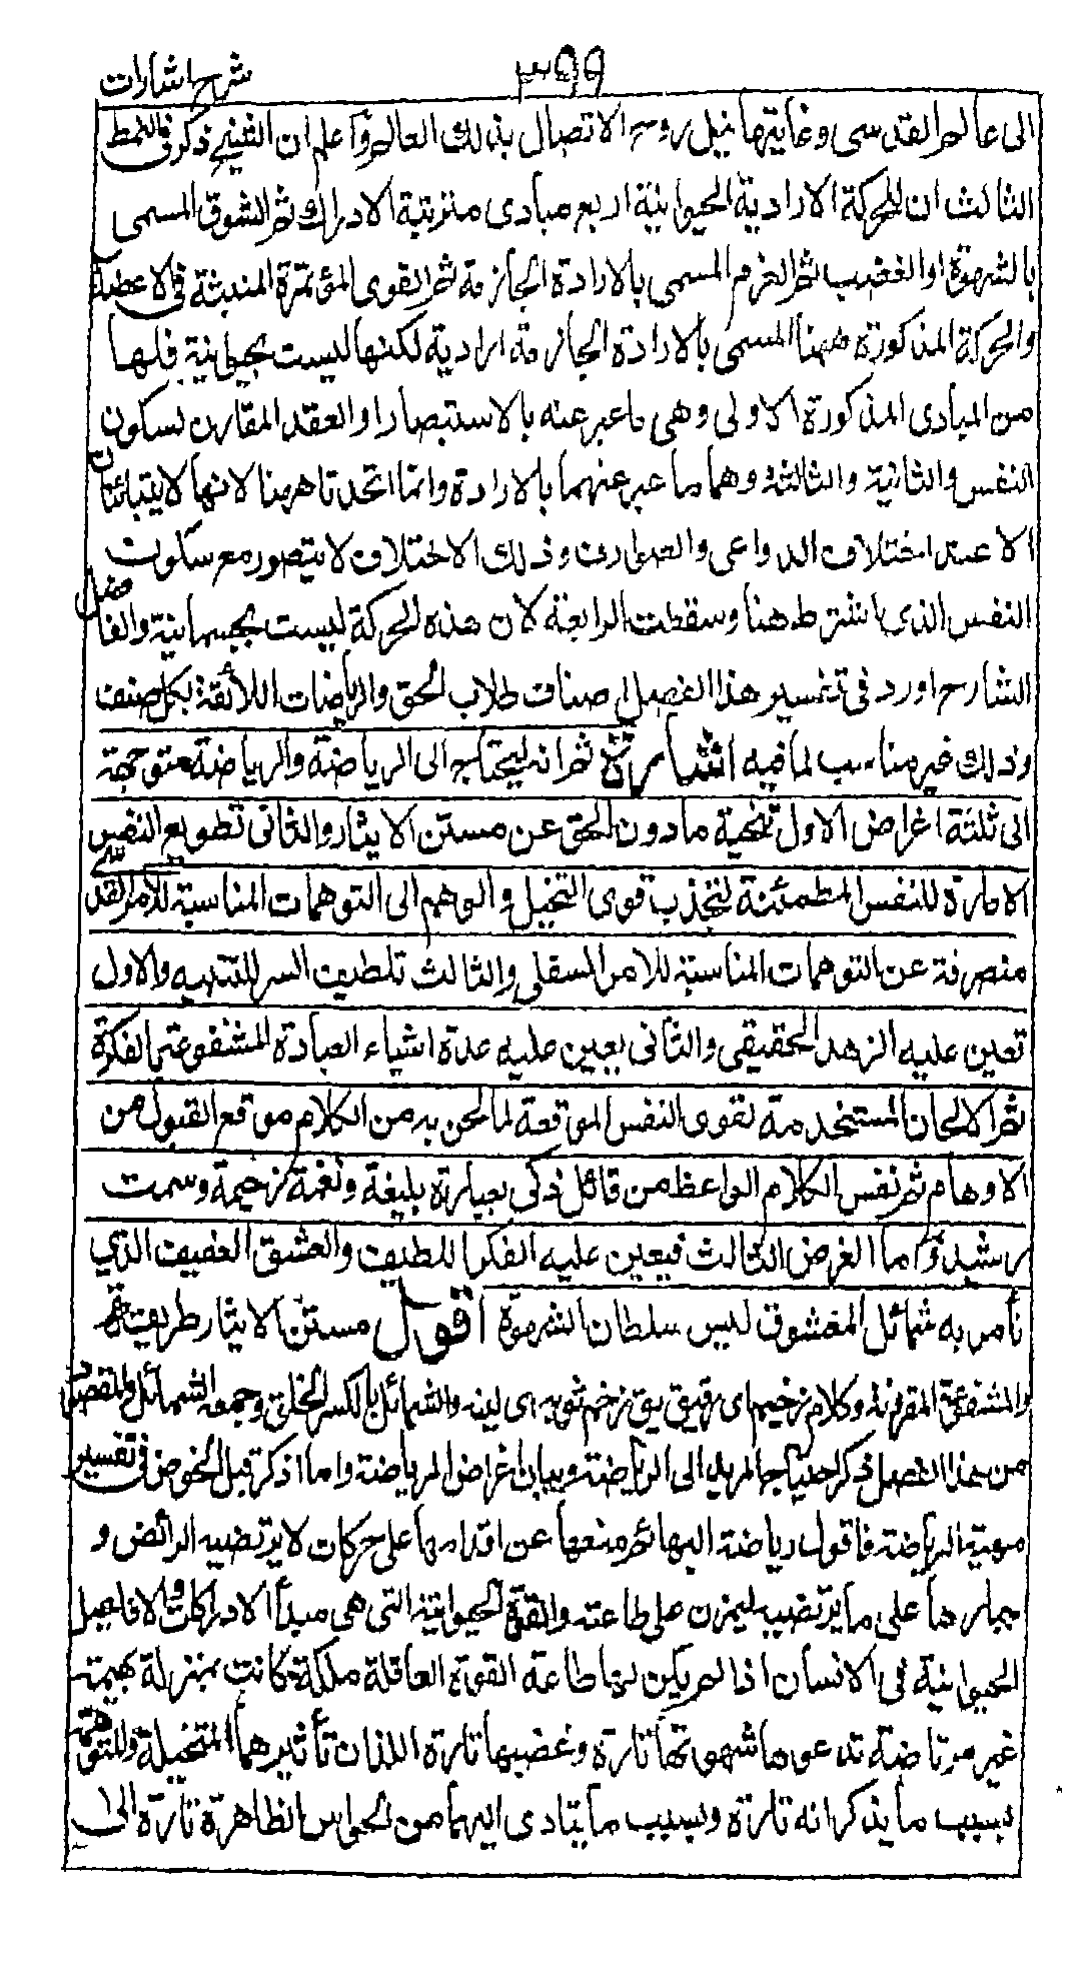 ٣٩٩
شرح اشارات
الى عالم القدسى وغايتها نيل روح الاتصال بذلك العالم واعلم ان الشيخ ذكر فى النمط
الثالث ان للحركة الارادية الحيوانية اربع مبادى مترتبة الادراك ثم الشوق المسمى
بالشهوة او الغضب ثم العزم المسمى بالارادة الجازمة ثم القوى المؤتمرة المنبثة فى الاعضاء
والحركة المذكورة ههنا المسمى بالارادة الجازمة ارادية لكنها ليست بحيوانية فلها
من المبادى المذكورة الاولى وهى ما عبر عنه بالاستبصار او العقد المقارن لسكون
النفس والثانية والثالثة وهما ما عبر عنهما بالارادة وانما اتحدتا ههنا لانها لا يتبائنان
الا عند اختلاف الدواعى والصوارف وذلك الاختلاف لا يتصور مع سكون
النفس الذى اشترط هنا وسقطت الرابعة لان هذه الحركة ليست بجسمانية والفاضل
الشارح اورد فى تفسير هذا الفصل اصناف طلاب الحق والرياضات اللائقة بكل صنف
وذلك غير مناسب لما فيه اشارة ثم انه ليحتاج الى الرياضة والرياضة متوجهة
الى ثلثة اغراض الاول تنحية ما دون الحق عن مستن الايثار والثانى تطويع النفس
الامارة للنفس المطمئنة لتنجذب قوى التخيل والوهم الى التوهمات المناسبة للامر القدسى
منصرفة عن التوهمات المناسبة للامر السفلى والثالث تلطيف السر للتنبيه والاول
تعين عليه الزهد الحقيقى والثانى يعين عليه عدة اشياء العبادة المشفوعة بالفكرة
ثم الالحان المستخدمة لقوى النفس الموقعة لما لحن به من الكلام موقع القبول من
الاوهام ثم نفس الكلام الواعظ من قائل ذكى بعبارة بليغة ونغمة رخيمة وسمت
رشيد واما الغرض الثالث فيعين عليه الفكر اللطيف والعشق العفيف الذي
تأمر به شمائل المعشوق ليس سلطان الشهوة اقول مستن الايثار طريقته
والمشفوعة المقرونة وكلام رخيم اى رقيق يق رخم ثوبه اى لينه والشمائل بالكسر الخلق وجمعه الشمائل والمقصود
من هذا الفصل ذكر احتياج المريد الى الرياضة وبيان اغراض الرياضة واما اذكر قبل الخوض فى تفسير
مهية الرياضة فاقول رياضة البهائم منعها عن اقدامها على حركات لا يرتضيه الرائض و
جبارها على ما يرتضيه ليمرن على طاعته والقوة الحيوانية التى هى مبدأ الادراكات والافاعيل
الحيوانية فى الانسان اذا لم يكن لها طاعة القوة العاقلة ملكة كانت بمنزلة بهيمة
غير مرتاضة تدعوها شهوتها تارة وغضبها تارة اللذان تأثيرهما المتخيلة والمتوهمة
بسبب ما يذكرانه تارة وبسبب ما يتادى اليهما من الحواس الظاهرة تارة الى